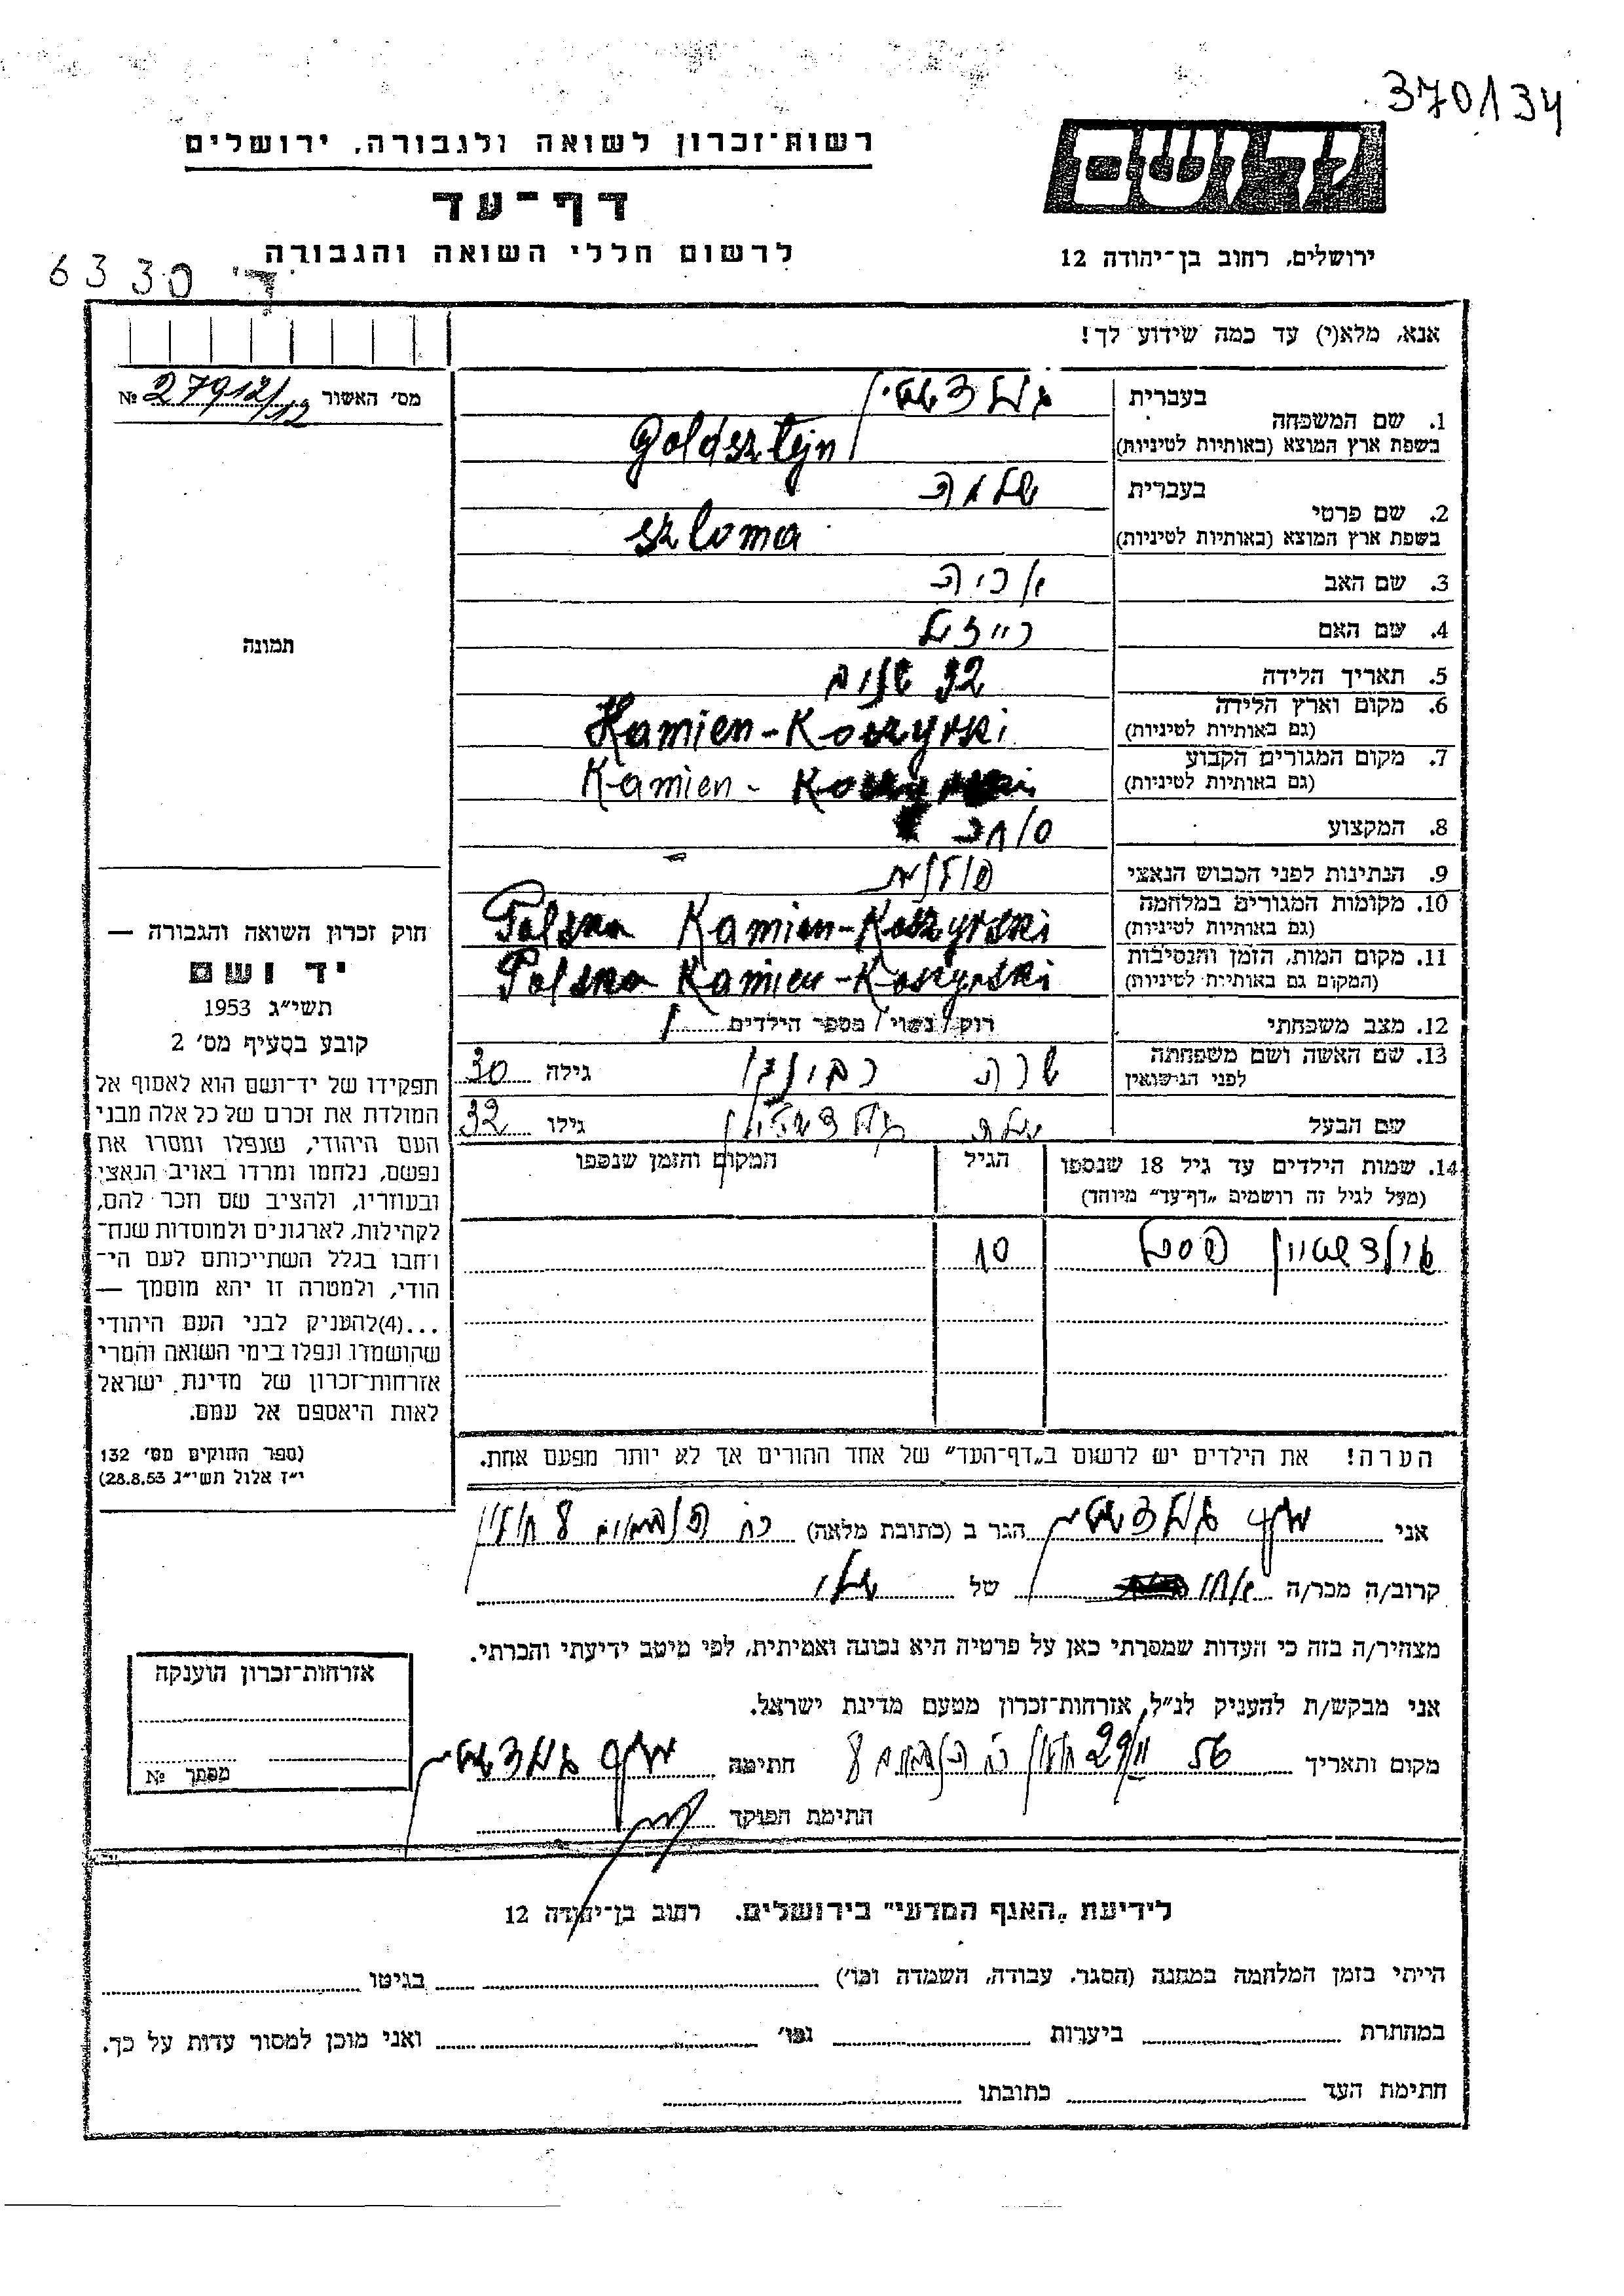 370/34
רשות־זכרון לשואה ולגבורה, ירושלים
יד ושם
דף־עד
לרשום חללי השואה והגבורה
ירושלים, רחוב בן־יהודה 12
ד' 6330
אנא, מלא(י) עד כמה שידוע לך!
מס' האשור 27912/12 №
1. שם המשפחה בעברית גולדשטיין
בשפת ארץ המוצא (באותיות לטיניות) Goldsztejn
2. שם פרטי בעברית שלמה
בשפת ארץ המוצא (באותיות לטיניות) Szloma
3. שם האב אריה
4. שם האם רייזל
5. תאריך הלידה 32 שנים
6. מקום וארץ הלידה
(גם באותיות לטיניות) Kamien-Koszyrski
7. מקום המגורים הקבוע
(גם באותיות לטיניות) Kamien-
8. המקצוע סוחר
9. הנתינות לפני הכבוש הנאצי פולנית
10. מקומות המגורים במלחמה
(גם באותיות לטיניות) Polska Kamien-Koszyrski
11. מקום המות, הזמן והנסיבות
(המקום גם באותיות לטיניות) Polska Kamien-Koszyrski
12. מצב משפחתי רווק / נשוי / מספר הילדים 1
13. שם האשה ושם משפחתה
לפני הנישואין שרה גילה 30
שם הבעל שלמה גולדשטיין גילו 32
14. שמות הילדים עד גיל 18 שנספו הגיל המקום והזמן שנספו
(מעל לגיל זה רושמים „דף־עד” מיוחד)
גולדשטיין פסל 10
הערה! את הילדים יש לרשום ב„דף־העד” של אחד ההורים אך לא יותר מפעם אחת.
תמונה
חוק זכרון השואה והגבורה —
יד ושם
תשי״ג 1953
קובע בסעיף מס' 2
תפקידו של יד־ושם הוא לאסוף אל
המולדת את זכרם של כל אלה מבני
העם היהודי, שנפלו ומסרו את
נפשם, נלחמו ומרדו באויב הנאצי
ובעוזריו, ולהציב שם וזכר להם,
לקהילות, לארגונים ולמוסדות שנח־
רבו בגלל השתייכותם לעם הי־
הודי, ולמטרה זו יהא מוסמך —
...(4) להעניק לבני העם היהודי
שהושמדו ונפלו בימי השואה והמרי
אזרחות־זכרון של מדינת ישראל
לאות היאספם אל עמם.
(ספר החוקים מס' 132
י״ז אלול תשי״ג 28.8.53)
אני גולדשטיין הגר ב (כתובת מלאה)
קרוב/ה מכר/ה של
מצהיר/ה בזה כי העדות שמסרתי כאן על פרטיה היא נכונה ואמיתית, לפי מיטב ידיעתי והכרתי.
אני מבקש/ת להעניק לנ״ל, אזרחות־זכרון מטעם מדינת ישראל.
מקום ותאריך 56 חולון חתימה גולדשטיין
חתימת הפוקד
אזרחות־זכרון הוענקה
מסמך №
לידיעת „האגף המדעי” בירושלים. רחוב בן־יהודה 12
הייתי בזמן המלחמה במחנה (הסגר, עבודה, השמדה וכו') בגיטו
במחתרת ביערות וכו' ואני מוכן למסור עדות על כך.
חתימת העד כתובתו